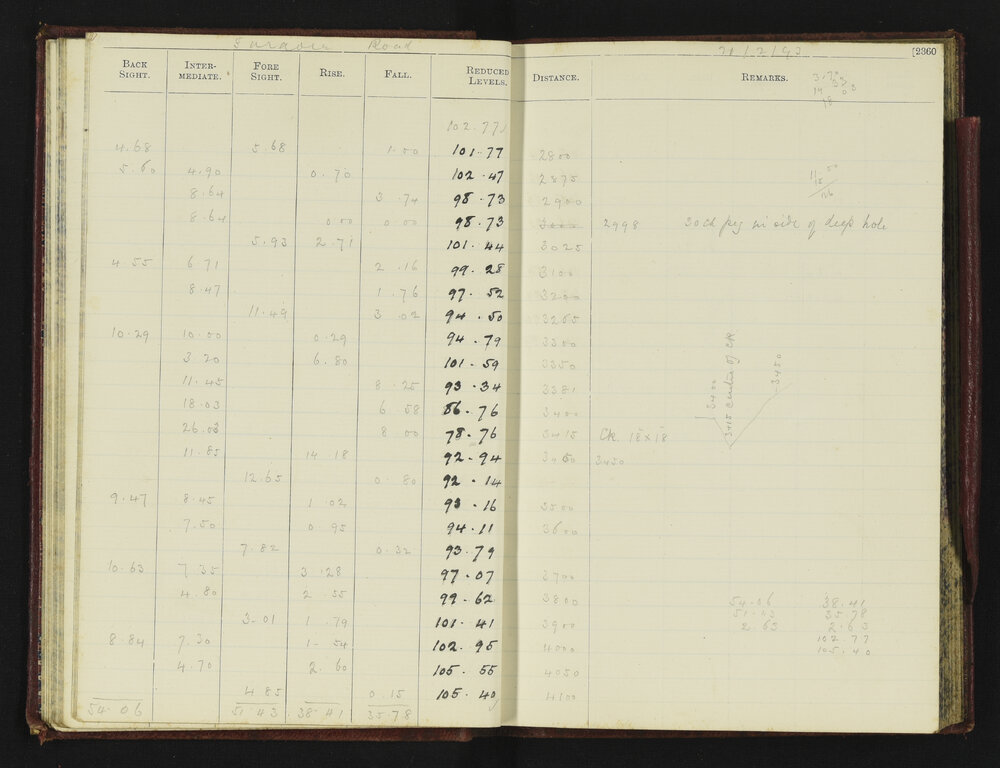 Road 21/2/93 [2360
BACK SIGHT. INTER-MEDIATE. FORE SIGHT. RISE. FALL. REDUCED LEVELS. DISTANCE. REMARKS.
102.77
4.68 5.68 1.00 101.77 2800
5.60 4.90 0.70 102.47 2875
8.64 3.74 98.73 2900
8.64 0.00 0.00 98.73 3000 2998 30 ch peg in side of deep hole
5.93 2.71 101.44 3025
4.55 6.71 2.16 99.28 3100
8.47 1.76 97.52 3200
11.49 3.02 94.50 3265
10.29 10.00 0.29 94.79 3300
3.20 6.80 101.59 3350
11.45 8.25 93.34 3381
18.03 6.58 86.76 3400
26.03 8.00 78.76 3415 Ck. 18"x18"
11.85 14.18 92.94 3450 3450
12.65 0.80 92.14
9.47 8.45 1.02 93.16 3500
7.50 0.95 94.11 3600
7.82 0.32 93.79
10.63 7.35 3.28 97.07 3700
4.80 2.55 99.62 3800
3.01 1.79 101.41 3900
8.84 7.30 1.54 102.95 4000
4.70 2.60 105.55 4050
4.85 0.15 105.40 4100
54.06 51.43 38.41 35.78
3400
3415 centre of CK
3450
54.06 38.41
51.43 35.78
2.63 2.63
102.77
105.40